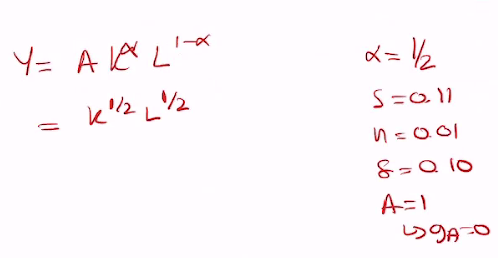 Y = A K^α L^1-α
= K^1/2 L^1/2
α = 1/2
S = 0.11
n = 0.01
δ = 0.10
A = 1
↳ gA = 0